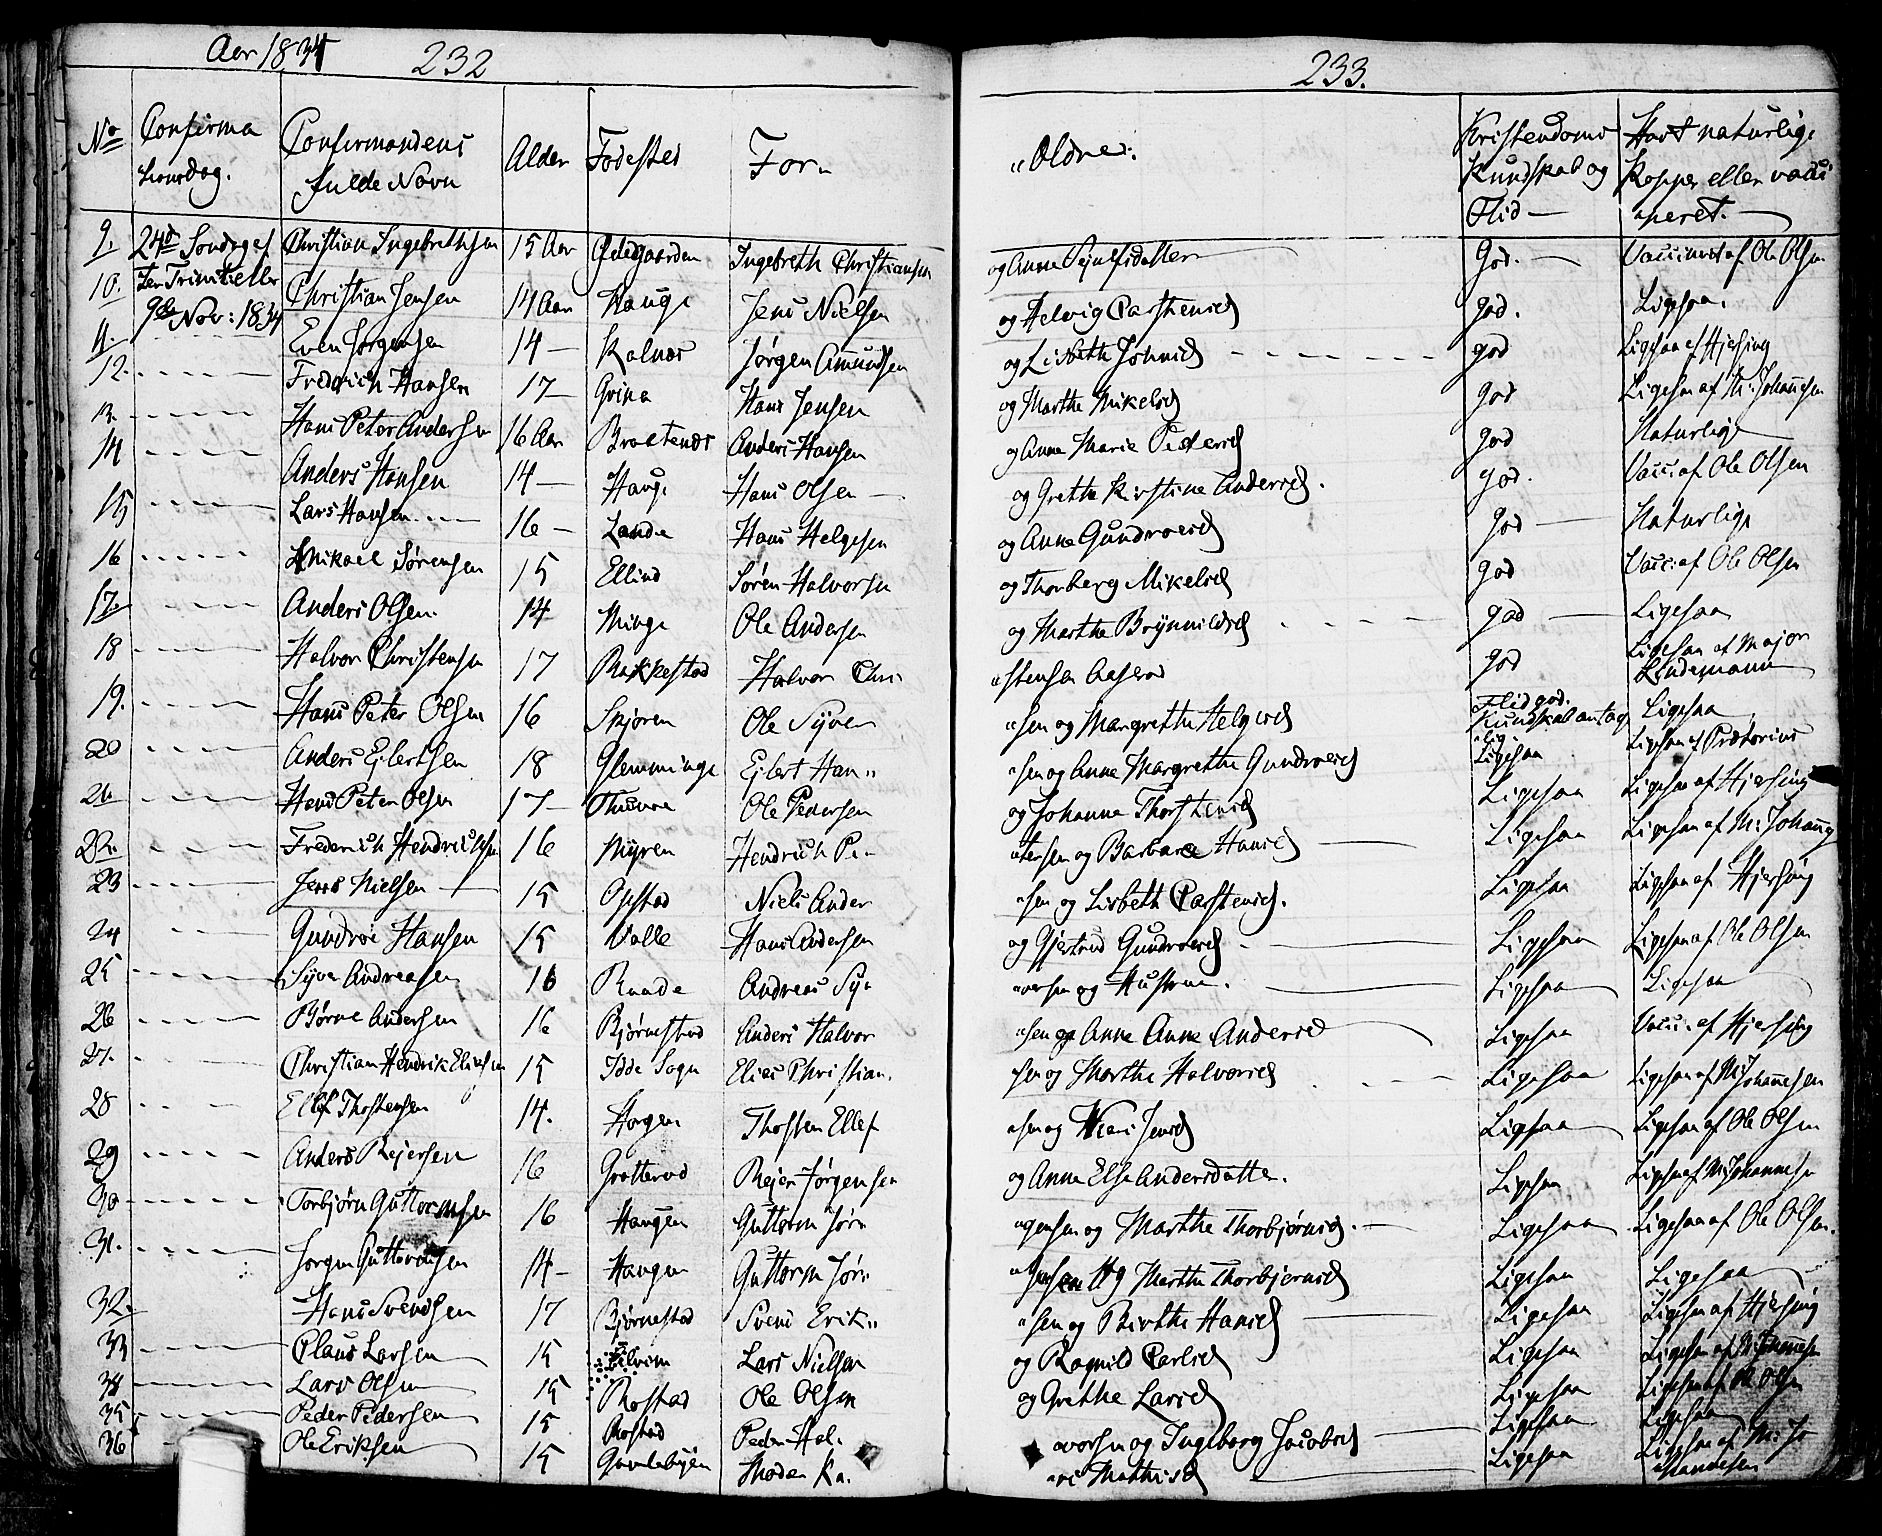 Aar 1834 232 233.
No Confirma Confirmandens Alder Födested For- "Ældre: Kristendoms Havt naturlige
tionsdag. fulde Navn Kundskab og Kopper eller vacci
Flid — "neret. —
9. 24de Søndag ef Christian Ingebrethsen 15 Aar Ødegaarden Ingebreth Christiansen og Anne God. — Vaccineret af Ole Olsen
10. ter Trinit: eller Christian Jensen 14 Aar Hauge Jens Nielsen og Helvig Carstensd God. Ligesaa.
9de Nov: 1834
11. Even Jørgensen 14 — Kalnæs Jørgen Amundsen og Lisbeth Johnsd god Ligesaa af Hjersing
12. Frederich Hansen 17 — Grina Hans Jensen og Marthe Mikelsd god Ligesaa af M: Johannesen
13. Hans Peter Andersen 16 Aar Braatenæs Anders Hansen og Anne Marie Pedersd god Naturlige
14 Anders Hansen 14 — Hauge Hans Olsen — og Grethe Kirstine Andersd. god. Vacc: af Ole Olsen
15 Lars Hansen 16 — Lande Hans Helgesen og Anne Gundroesd god — Naturlige
16 Mikael Sørensen 15 Ellind Søren Halvorsen og Thorberg Mikelsd god Vacc: af Ole Olsen
17. Anders Olsen 14 — Minge Ole Andersen og Marthe Brynnildsd god — Ligesaa
18 Halvor Christensen 17 Rakkestad Halvor Chri- "stensen Aaserød god Ligesaa af Major
Lindemann
19. Hans Peter Olsen 16 Skjøren Ole Syver "sen og Margrethe Helgesd Flid god. Kundskab antag Ligesaa
"lig
20 Anders Ejlertsen 18 Glemminge Ejlert Han" "sen og Anne Margrethe Gundroesd Ligesaa Ligesaa af Prætorius
21 Hans Peter Olsen 17 — Thune Ole Pedersen og Johanne Thorstensd Ligesaa Ligesaa af Hjersing
22. Frederich Hendrichsen 16 Myren Hendrich Pe- "tersen og Barbara Hansd — Ligesaa Ligesaa af M: Johanne
23 Jens Nielsen — 15 Opstad Niels Ander "sen og Lisbeth Carstensd. Ligesaa Ligesaa af Hjersing
24 Gundroe Hansen 15 Valle Hans Andersen og Gjertrud Gundroesd — Ligesaa Ligesaa af Ole Olsen
25 Syver Andreasen 16 Raade Andreas Sy- "versen og Hustrue. Ligesaa Ligesaa
26 Børne Andersen 16 Bjørnestad Anders Halvor "sen og Anne Anne Andersd Ligesaa Vacc: af Hjersing
27. Christian Hendrik Eliesen 15 Idde Sogn Elies Christian. sen og Marthe Halvorsd Ligesaa Ligesaa af M: Johannesen
28 Ellef Thorstensen 14. Horgen Thosten Ellef "sen og Jensd Ligesaa Ligesaa af Ole Olsen
29 Anders Rejersen 16 Grotterød Rejer Jørgensen og Anne Else Andersdatter. Ligesaa Ligesaa af M: Johannesen
30 Torbjørn Guttormsen 16 Haugen Guttorm Jør" "gensen og Marthe Thorbjørnsd. — Ligesaa Ligesaa af Ole Olsen.
31. Jørgen Guttormsen 14 — Haugen Guttorm Jør" "gensen og Marthe Thorbjørnsd Ligesaa Ligesaa
32. Hans Svendsen 17 Bjørnestad Svend Erik" "sen og Birthe Hansd — Ligesaa Ligesaa af Hjersing
33 Claus Larsen 15 Lars Nielsen og Ragnild Carlsd Ligesaa Ligesaa af M: Johannesen
34 Lars Olsen 15 Rostad Ole Olsen og Grethe Larsd Ligesaa Ligesaa af Ole Olsen
35 Peder Pedersen 15 Rostad Peder Hal. "vorsen og Ingeborg Jacobsd — Ligesaa Ligesaa
36 Ole Eriksen 15 Gamlebyen Moder Ka. "ri Mathisd — Ligesaa Ligesaa af M: Jo
"hannesen